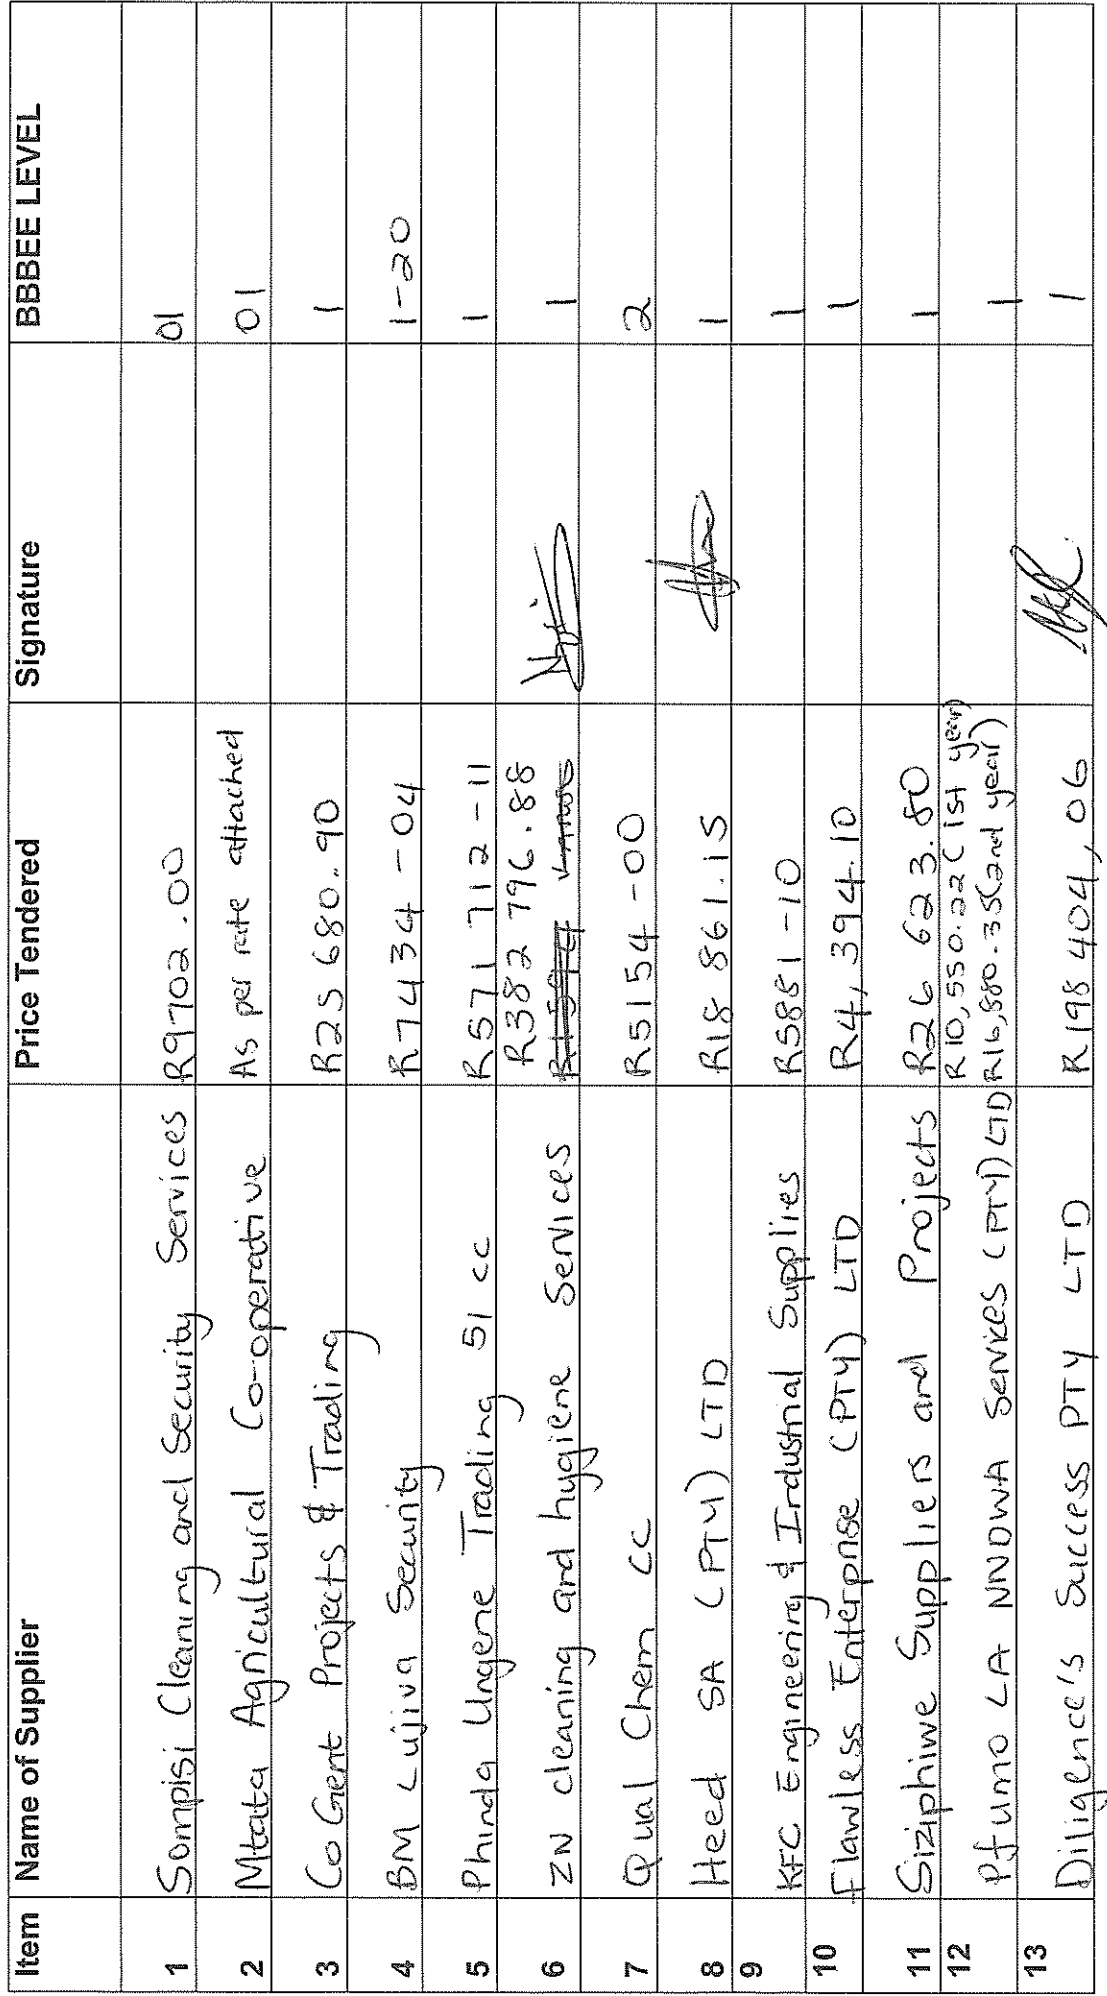 Item Name of Supplier Price Tendered Signature BBBEE LEVEL
1 Sompisi Cleaning and Security Services R9702.00 01
2 Mtata Agricultural Co-operative As per rate attached 01
3 CoGent Projects & Trading R25 680.90 1
4 BM Lujiva Security R7434-04 1-20
5 Phinda Ungene Trading 51 cc R571 712-11 1
R382 796.88
6 ZN cleaning and hygiene Services 1
7 Qual Chem cc R5154-00 2
8 Heed SA (PTY) LTD R18 861.15 1
9 KFC Engineering & Industrial Supplies R5881-10 1
10 Flawless Enterprise (PTY) LTD R4,394.10 1
11 Siziphiwe Suppliers and Projects R26 623.80 1
R10,550.22 (1st year)
12 Pfumo LA NNDWA Services (PTY) LTD R16,880.35 (2nd year) 1
13 Diligence's Success PTY LTD R198 404,06 1